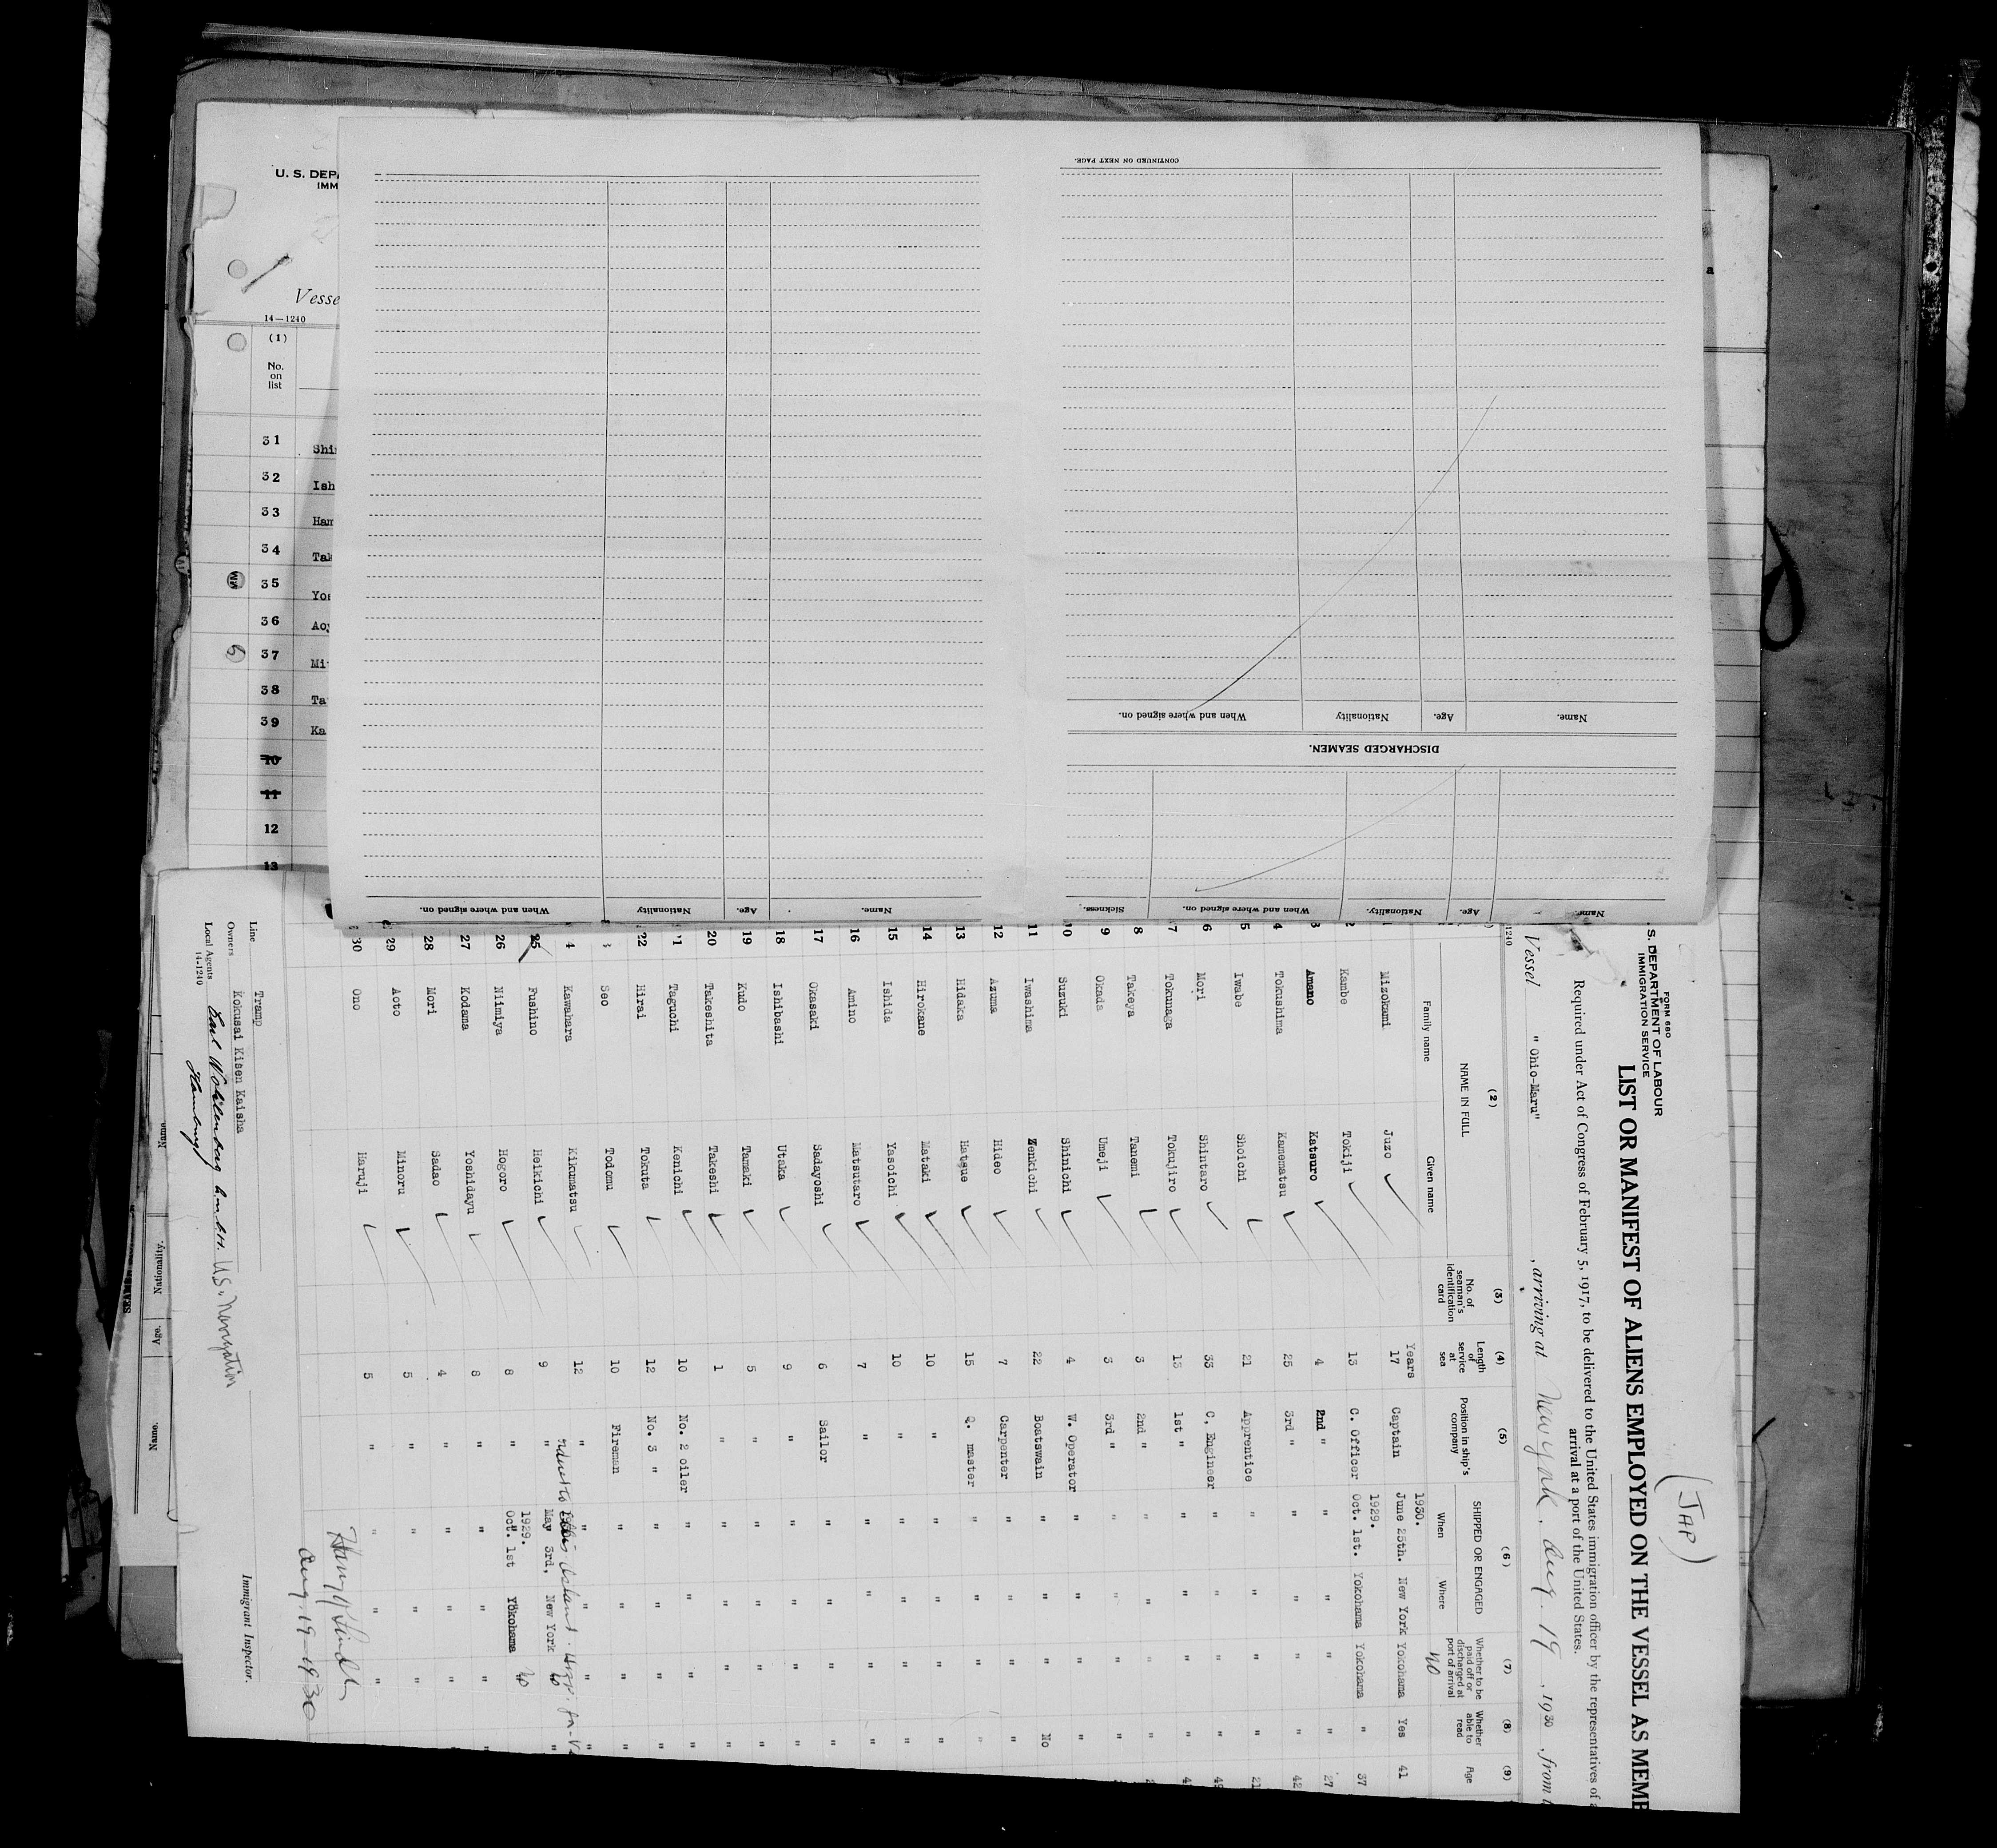 U. S. DEPA
IMM
Vesse
14—1240
(1)
No.
on
list
31 Shi
32 Ish
33 Ham
34 Tak
35 Yos
36 Aoy
37 Mi
38 Ta
39 Ka
10
11
12
13
CONTINUED ON NEXT PAGE.
Name. Age. Nationality When and where signed on.
DISCHARGED SEAMEN.
Name. Age. Nationality. When and where signed on. Sickness.
Name. Age. Nationality When and where signed on.
(JAP)
FORM 680
S. DEPARTMENT OF LABOUR
IMMIGRATION SERVICE
LIST OR MANIFEST OF ALIENS EMPLOYED ON THE VESSEL AS MEMB
Required under Act of Congress of February 5, 1917, to be delivered to the United States immigration officer by the representatives of a
arrival at a port of the United States.
Vessel "Ohio-Maru" , arriving at New York, Aug. 19 , 1930 , from t
1240
(2) (3) (4) (5) (6) (7) (8) (9)
NAME IN FULL
Family name Given name
No. of seaman's identification card
Length of service at sea
Position in ship's company
SHIPPED OR ENGAGED
When Where
Whether to be paid off or discharged at port of arrival
Whether able to read
Age
Years 1930. no
1 Mizokami Juzo 17 Captain June 25th. New York Yokohama Yes 41
1929.
2 Kambe Tokiji 13 C. Officer Oct. 1st. Yokohama Yokohama " 37
3 Amano Katsuro 4 2nd " " " " " 27
4 Tokushima Kamematsu 25 3rd " " " " " 42
5 Iwabe Shoichi 21 Apprentice " " " " 21
6 Mori Shintaro 33 C. Engineer " " " " 49
7 Tokunaga Tokujiro 13 1st " " " " " 4
8 Takeya Tanemi 3 2nd " " " " " 2
9 Okada Umeji 3 3rd " " " " "
10 Suzuki Shinichi 4 W. Operator " " " "
11 Iwashima Zenkichi 22 Boatswain " " " No
12 Azuma Hideo 7 Carpenter " " " "
13 Hidaka Hatsue 15 Q. master " " " "
14 Hirokane Mataki 10 " " " " "
15 Ishida Yasoichi 10 " " " " "
16 Amino Matsutaro 7 " " " " "
17 Okasaki Sadayoshi 6 Sailor " " " "
18 Ishibashi Utaka 9 " " " " "
19 Kudo Tamaki 5 " " " " "
20 Takeshita Takeshi 1 " " " " "
11 Taguchi Kenichi 10 No. 2 oiler " " " "
22 Hirai Tokuta 12 No. 3 " " " " "
3 Seo Todomu 10 Fireman " " " "
4 Kawahara Kikumatsu 12 " " " " "
Ellis Island. Hosp.
25 Fushino Heikichi 9 " May 3rd, New York "
1929.
26 Niimiya Hogoro 8 " Oct. 1st Yokohama "
27 Kodama Yoshidayu 8 " " " " "
28 Mori Sadao 4 " " " " "
29 Aoto Minoru 5 " " " " "
30 Ono Haruji 5 " " " "
Harry
Aug. 19-1930
Immigrant Inspector.
Line Tramp
Owners Kokusai Kisen Kaisha
Local Agents Hamburg U.S. Navigation
14-1240
Name Nationality. Age. Name.
SEAMEN